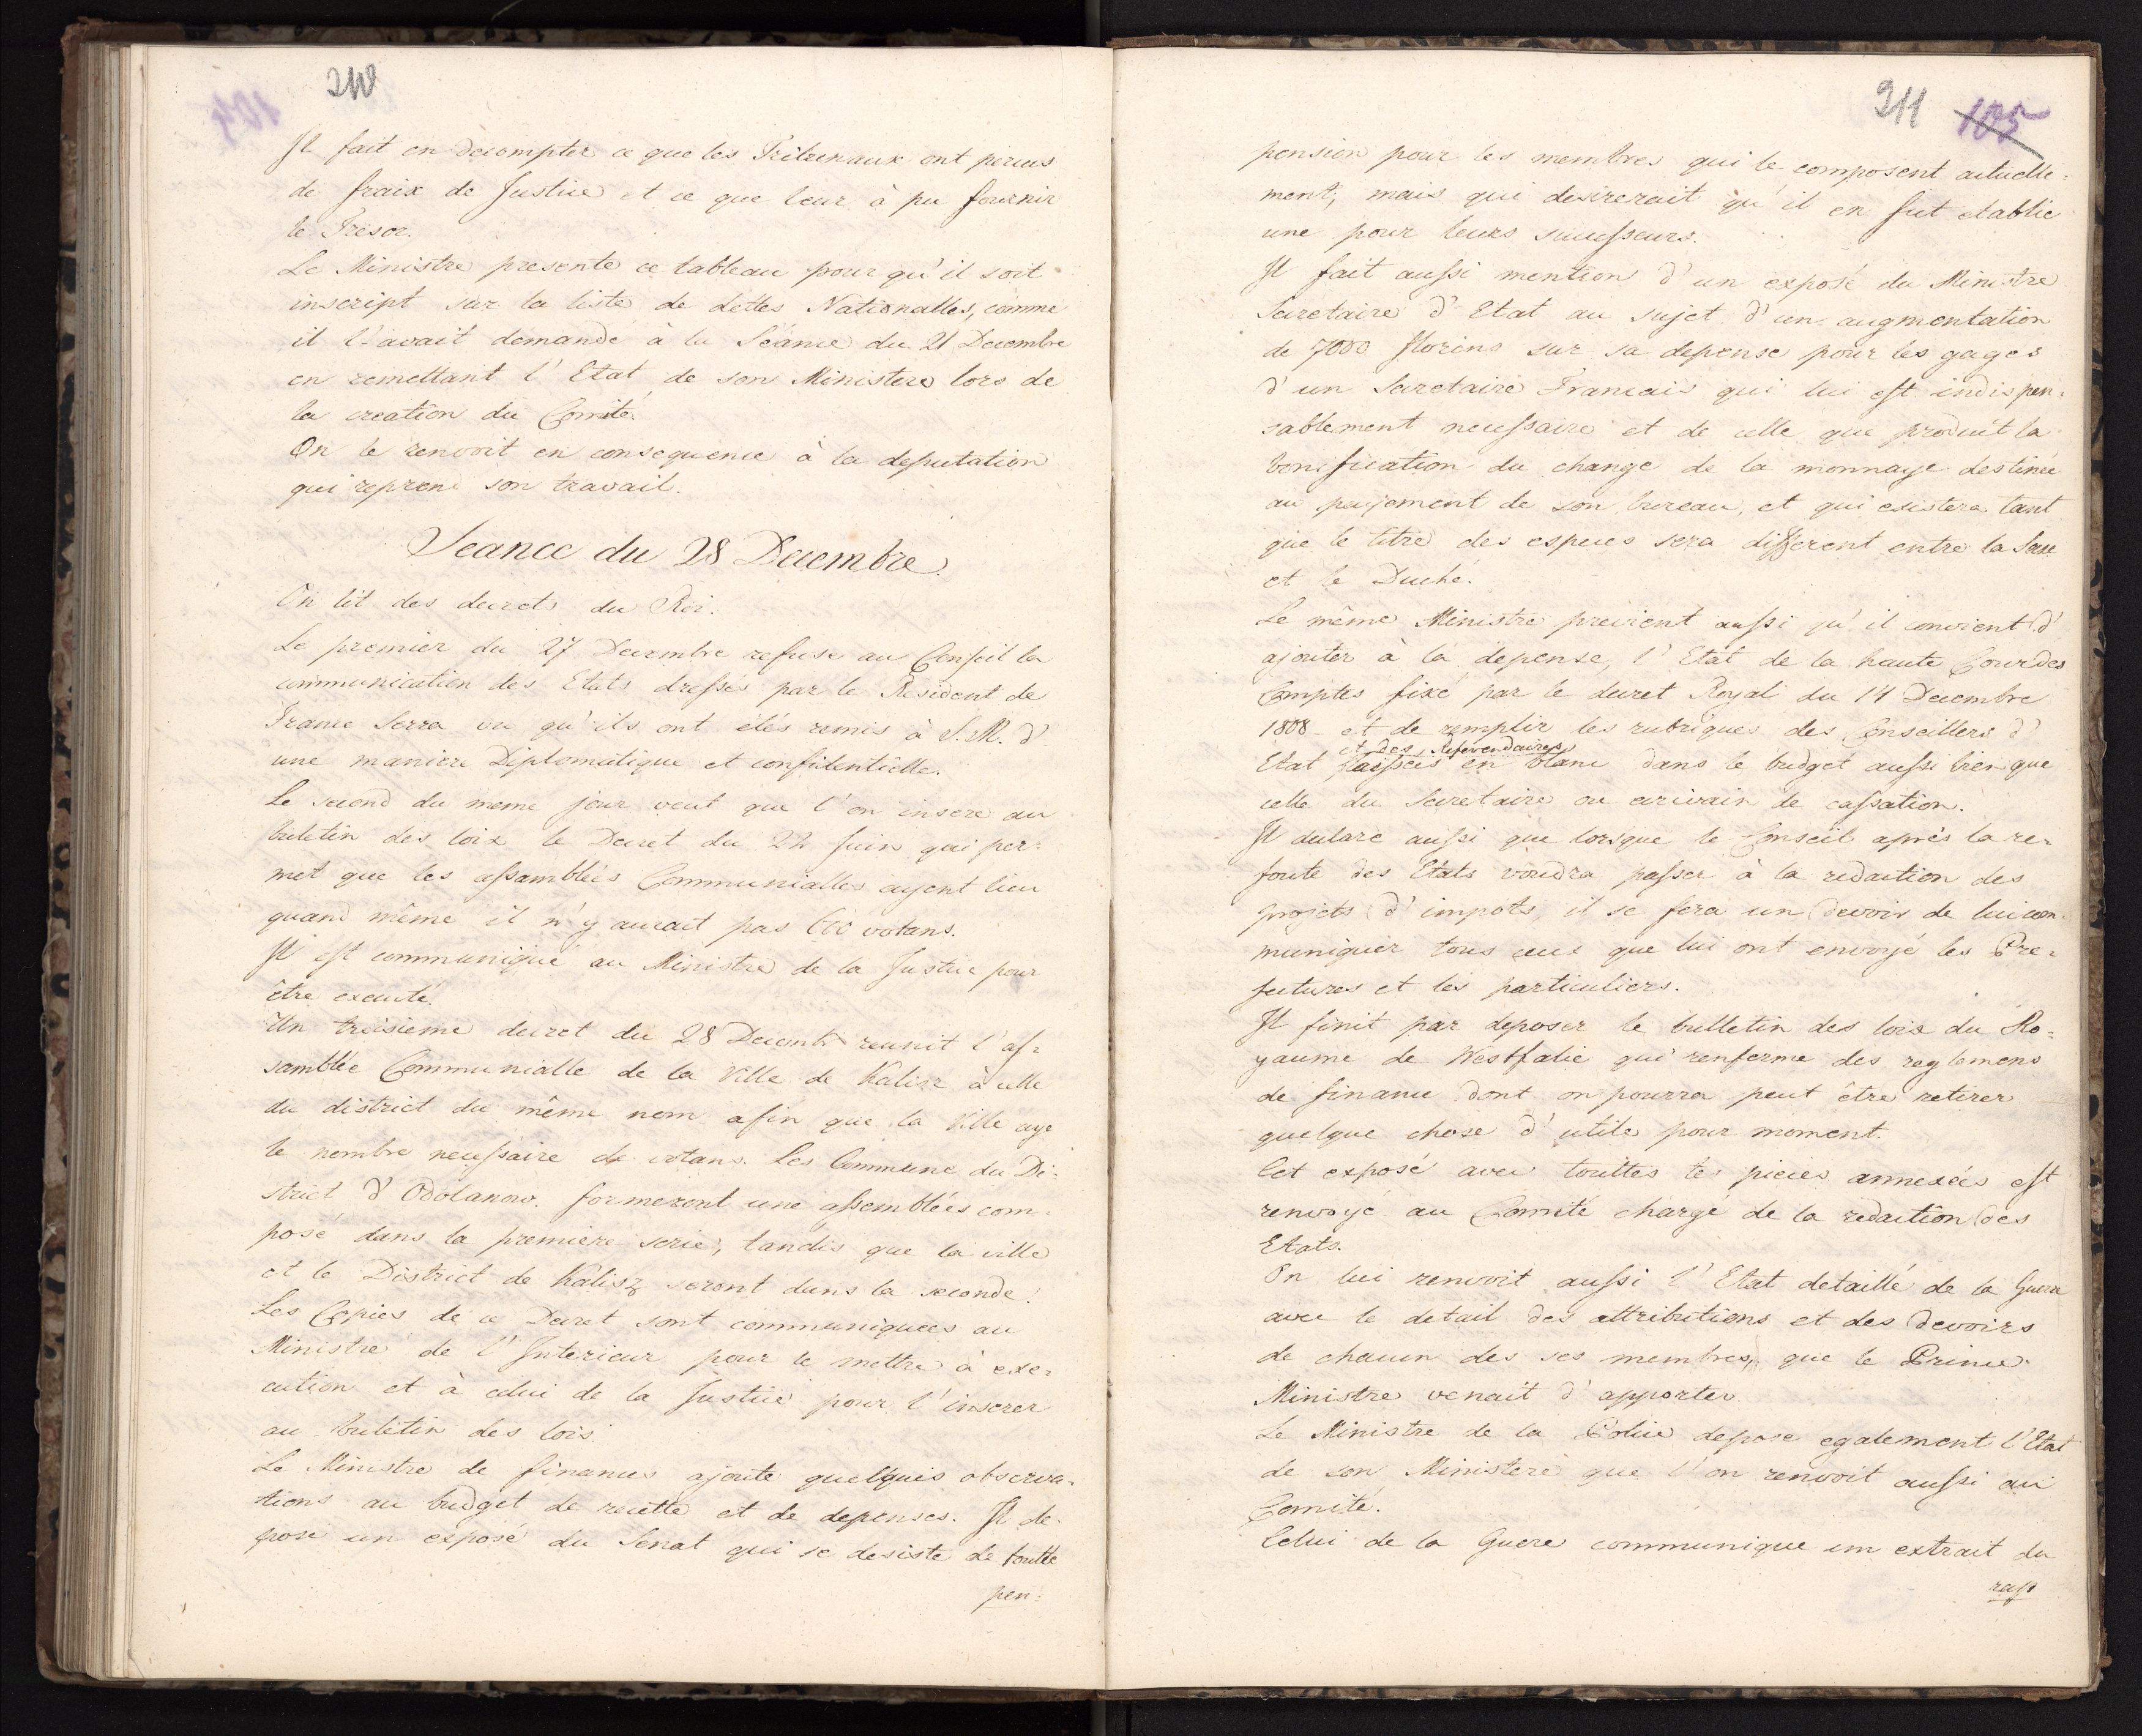 210
Il fait en decompter ce que les Tribunaux ont percus
de fraix de Justice et ce que leur à pu fournir
le Tresor.
Le Ministre presente ce tableau pour qu'il soit
inscript sur la liste de dettes Nationalles, comme
il l'avait demandé à la Séance du 21 Decembre
en remettant l'Etat de son Ministere lors de
la creation du Comité.
On le renvoit en consequence à la deputation
qui reprend son travail.
Seance du 28 Decembre.
On lit des decrets du Roi.
Le premier du 27 Decembre refuse au Conseil la
communication des Etats dressés par le Resident de
France Serra vu qu'ils ont étés remis à S. M. d'
une maniere Diplomatique et confidentielle.
Le second du meme jour veut que l'on insere au
buletin des loix le Decret du 22 Juin qui per-
met que les assamblées Communialles ayent lieu
quand même il n'y aurait pas 600 votans.
Il est communiqué au Ministre de la Justice pour
être executé.
Un troisieme decret du 28 Decemb. reunit l'as-
samblée Communialle de la Ville de Kalisz à celle
du district du même nom afin que la Ville aye
le nombre necessaire de votans. Les Commune du Di-
strict d'Odolanow formeront une assemblées com-
posé dans la premiere serie, tandis que la ville
et le District de Kalisz seront dans la seconde.
Les Copies de ce Decret sont communiquees au
Ministre de l'Interieur pour le mettre à exe-
cution et à celui de la Justice pour l'inserer
au buletin des lois.
Le Ministre de finances ajoute quelques observa-
tions au budget de recette et de depenses. Il de-
pose un exposé du Senat qui se desiste de toutte
pen-
211 105
pension pour les membres qui le composent actuelle-
ment, mais qui desirerait qu'il en fut etablie
une pour leurs successeurs.
Il fait aussi mention d'un exposé du Ministre
Secretaire d'Etat au sujet d'un augmentation
de 7000 florins sur sa depense pour les gages
d'un Secretaire Francais qui lui est indispen-
sablement necessaire et de celle que produit la
bonification du change de la monnaye destinée
au payement de son bureau, et qui existera tant
que le titre des especes sera different entre la Saxe
et le Duché.
Le même Ministre previent aussi qu'il convient d'
ajouter à la depense, l'Etat de la haute Cour des
Comptes fixé par le decret Royal du 14 Decembre
1808 et de remplir les rubriques des Conseillers d'
et des Referendaires
Etat laissées en blanc dans le budget aussi bien que
celle du Secretaire ou ecrivain de cassation.
Il declare aussi que lorsque le Conseil après la re-
fonte des Etats voudra passer à la redaction des
projets d'impots, il se fera un devoir de lui com-
muniquer tous ceux que lui ont envoyé les Pre-
fectures et les particuliers.
Il finit par deposer le bulletin des lois du Ro-
yaume de Westfalie qui renferme des reglemens
de finance dont on pourra peut être retirer
quelque chose d'utile pour moment.
Cet exposé avec touttes les pieces annexées est
renvoyé au Comité chargé de la redaction des
Etats.
On lui renvoit aussi l'Etat detaillé de la Guerre
avec le detail des attributions et des devoirs
de chacun des ses membres, que le Prince
Ministre venait d'apporter.
Le Ministre de la Police depose egalement l'Etat
de son Ministere que l'on renvoit aussi au
Comité.
Celui de la Guere communique un extrait du
rap